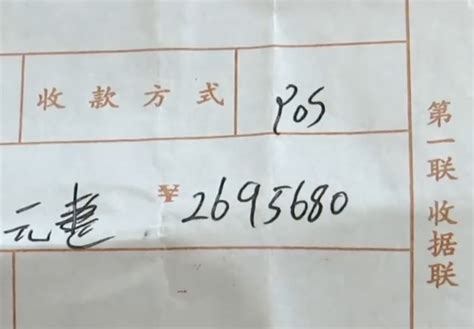 收款方式 POS
元整 ¥ 2695680
第一联 收据联